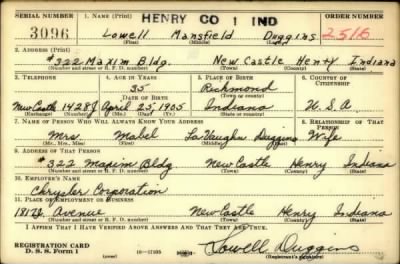 SERIAL NUMBER 1. NAME (Print) HENRY CO 1 IND ORDER NUMBER
3096 Lowell Mansfield Duggins 2516
(First) (Middle) (Last)
2. ADDRESS (Print)
#322 Maxim Bldg. New Castle Henry Indiana
(Number and street or R. F. D. number) (Town) (County) (State)
3. TELEPHONE 4. AGE IN YEARS 5. PLACE OF BIRTH 6. COUNTRY OF CITIZENSHIP
35 Richmond
DATE OF BIRTH (Town or county)
New Castle 1428J April 25, 1905 Indiana U.S.A.
(Exchange) (Number) (Mo.) (Day) (Yr.) (State or country)
7. NAME OF PERSON WHO WILL ALWAYS KNOW YOUR ADDRESS 8. RELATIONSHIP OF THAT PERSON
Mrs. Mabel LaVaughn Duggins Wife
(Mr., Mrs., Miss) (First) (Middle) (Last)
9. ADDRESS OF THAT PERSON
#322 Maxim Bldg New Castle Henry Indiana
(Number and street or R. F. D. number) (Town) (County) (State)
10. EMPLOYER'S NAME
Chrysler Corporation
11. PLACE OF EMPLOYMENT OR BUSINESS
Avenue New Castle Henry Indiana
(Number and street or R. F. D. number) (Town) (County) (State)
I AFFIRM THAT I HAVE VERIFIED ABOVE ANSWERS AND THAT THEY ARE TRUE.
REGISTRATION CARD
D. S. S. Form 1 (over) Lowell Duggins
(Registrant's signature)